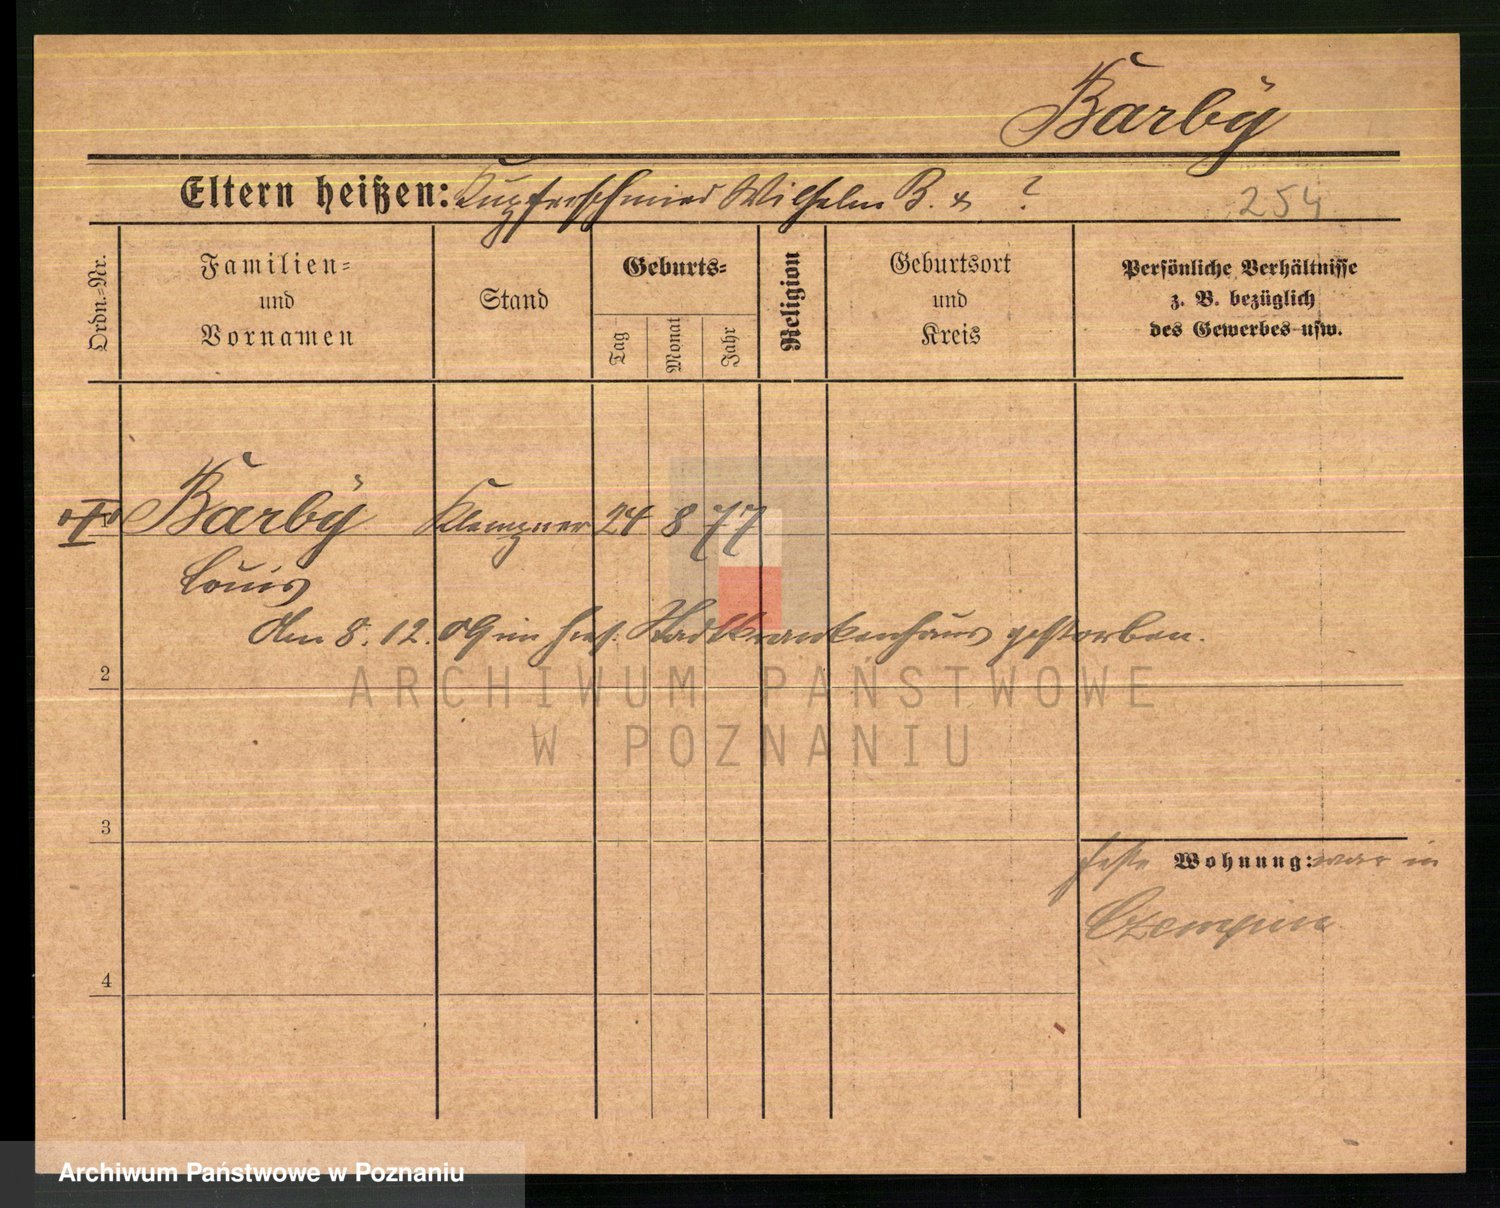 Barby
Eltern heißen: Kupferschmied Wilhelm B. & ?
254
Ordn.-Nr.
Familien-
und
Vornamen
Stand
Geburts-
Tag
Monat
Jahr
Religion
Geburtsort
und
Kreis
Persönliche Verhältnisse
z. B. bezüglich
des Gewerbes usw.
Barby Klempner 24 8 77
Louis
Am 8. 12. 09 im hies. Stadtkrankenhaus gestorben.
2
ARCHIWUM PAŃSTWOWE
W POZNANIU
3
feste Wohnung: war in
Czempin
4
Archiwum Państwowe w Poznaniu